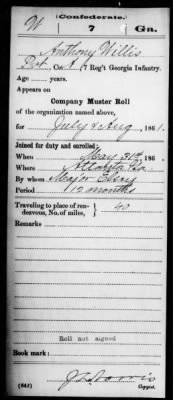 W
Confederate.
7
Ga.
Anthony Willis
Pvt Co. A 7 Reg't Georgia Infantry.
Age years.
Appears on
Company Muster Roll
of the organization named above,
for July & Aug, 1861.
Joined for duty and enrolled:
When May 31st, 186 .
Where Atlanta Ga.
By whom Major
Period 12 months
Traveling to place of ren-
dezvous, No. of miles, 40
Remarks:
Roll not signed
Book mark:
(642)
Copyist.